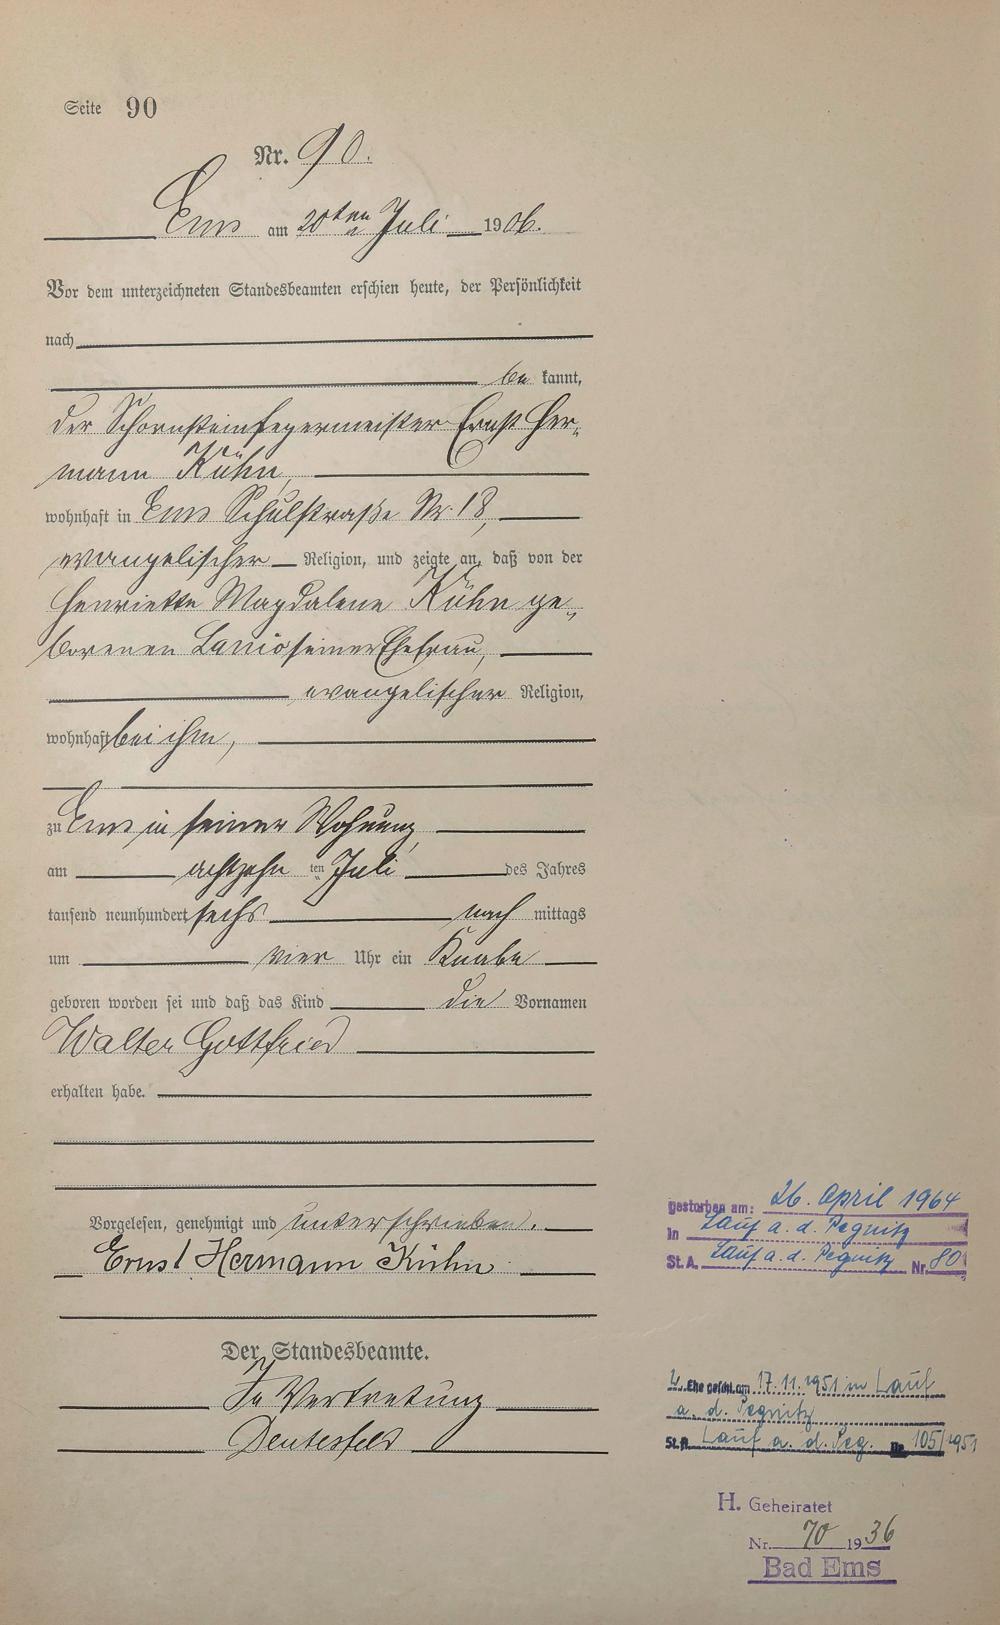 Seite 90
Nr. 90.
Ems am 20ten Juli 1906.
Vor dem unterzeichneten Standesbeamten erschien heute, der Persönlichkeit
nach
be kannt,
der Schornsteinfegermeister Ernst Her-
mann Kühn,
wohnhaft in Ems Schulstraße Nr. 18,
evangelischer Religion, und zeigte an, daß von der
Henriette Magdalene Kühn ge-
borenen Lanio seiner Ehefrau,
evangelischer Religion,
wohnhaft bei ihm,
zu Ems in seiner Wohnung,
am achtzehn ten Juli des Jahres
tausend neunhundert sechs nach mittags
um vier Uhr ein Knabe
geboren worden sei und daß das Kind die Vornamen
Walter Gottfried
erhalten habe.
Vorgelesen, genehmigt und unterschrieben.
Ernst Hermann Kühn
Der Standesbeamte.
In Vertretung
gestorben am: 26. April 1964
In Lauf a. d. Pegnitz
St.A. Lauf a. d. Pegnitz Nr. 80
2. Ehe geschl. am 17.11.1951 in Lauf
a. d. Pegnitz
St.A. Lauf a. d. Peg. Nr. 105/1951
H. Geheiratet
Nr. 70 1936
Bad Ems